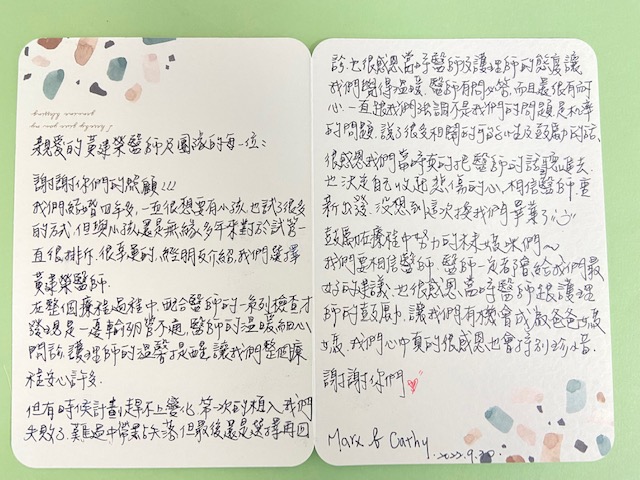 親愛的黃建榮醫師及團隊的每一位:
謝謝你們的照顧!!!
我們結婚四年多,一直很想要有小孩,也試了很多
的方式,但與小孩還是無緣,多年來對於試管一
直很排斥,很幸運的,經朋友介紹,我們選擇
黃建榮醫師.
在整個療程過程中,配合醫師的一系列檢查才
發現是一邊輸卵管不通,醫師的溫暖細心
問診,護理師的溫馨提醒讓我們整個療
程安心許多.
但有時候計劃趕不上變化,第一次的植入我們
失敗了,難過中帶點失落,但最後還是選擇再回
診.也很感恩當時醫師及護理師的態度讓
我們覺得溫暖.醫師有問必答,而且還很有耐
心一直跟我們強調不是我們的問題是机率
的問題.說了很多相關的可能性及鼓勵的話.
很感恩我們當時真的把醫師的話聽進去,
也決定自己收起悲傷的心,相信醫師,重
新出發.沒想到這次換我們畢業了
鼓勵在療程中努力的准媽咪們~
我們要相信醫師.醫師一定會陪給我們最
好的建議.也很感恩當時醫師跟護理
師的鼓勵.讓我們有機會成為爸爸媽
媽.我們心中真的很感恩也會特別珍惜.
謝謝你們
Marx & Cathy.
2022.9.30.